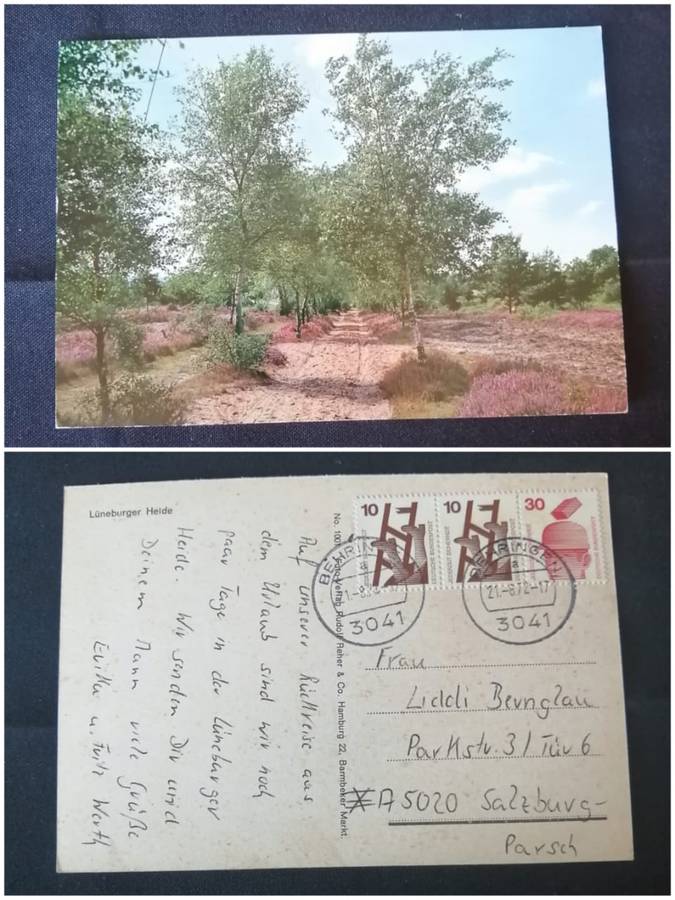 Lüneburger Heide
Auf unserer Rückreise aus
dem Urlaub sind wir noch
paar Tage in der Lüneburger
Heide. Wir senden Dir und
Deinem Mann viele Grüße
u. Fritz
No. 100 Foto-Verlag Rudolf Reher & Co. Hamburg 22, Barmbeker Markt.
10
10
30
BEHRINGEN
a
3041
BEHRINGEN
a
21.-8.72-17
3041
Frau
Liddi Bernglau
Parkstr. 3/Tür 6
A 5020 Salzburg-
Parsch